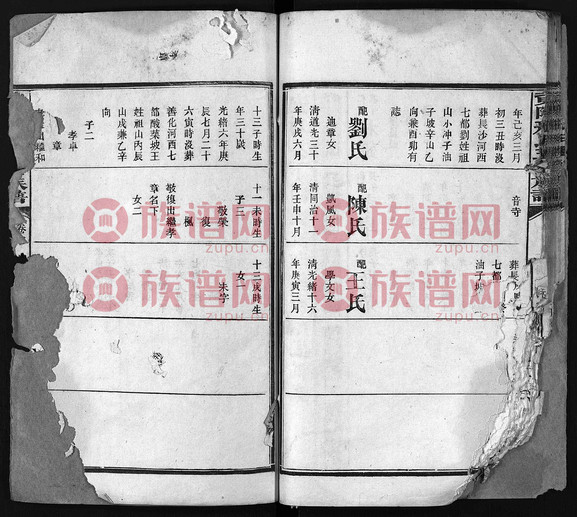 年己亥三月
初三丑時沒
葬長沙河西
七都劉姓祖
山小冲子油
子坡辛山乙
向兼酉卯有
誌
配劉氏
迪章女
清道光三十
年庚戌六月
十三子時生
年三十歲
光緒六年庚
辰七月二十
六寅時沒葬
善化河西七
都酸菜坡王
姓祖山丙辰
山戌兼乙辛
向
子二
孝卓
章
音寺
配陳氏
凱風女
清同治十一
年壬申十月
十一未時生
子三
敬榮
復
楓
敬復出繼孝
章名下
女二
葬長
七都
油子
配王氏
學文女
清光緒十六
年庚寅三月
十三戌時生
女一
未字
族谱网
zupu.cn
族谱网
zupu.cn
族谱网
zupu.cn
族谱网
zupu.cn